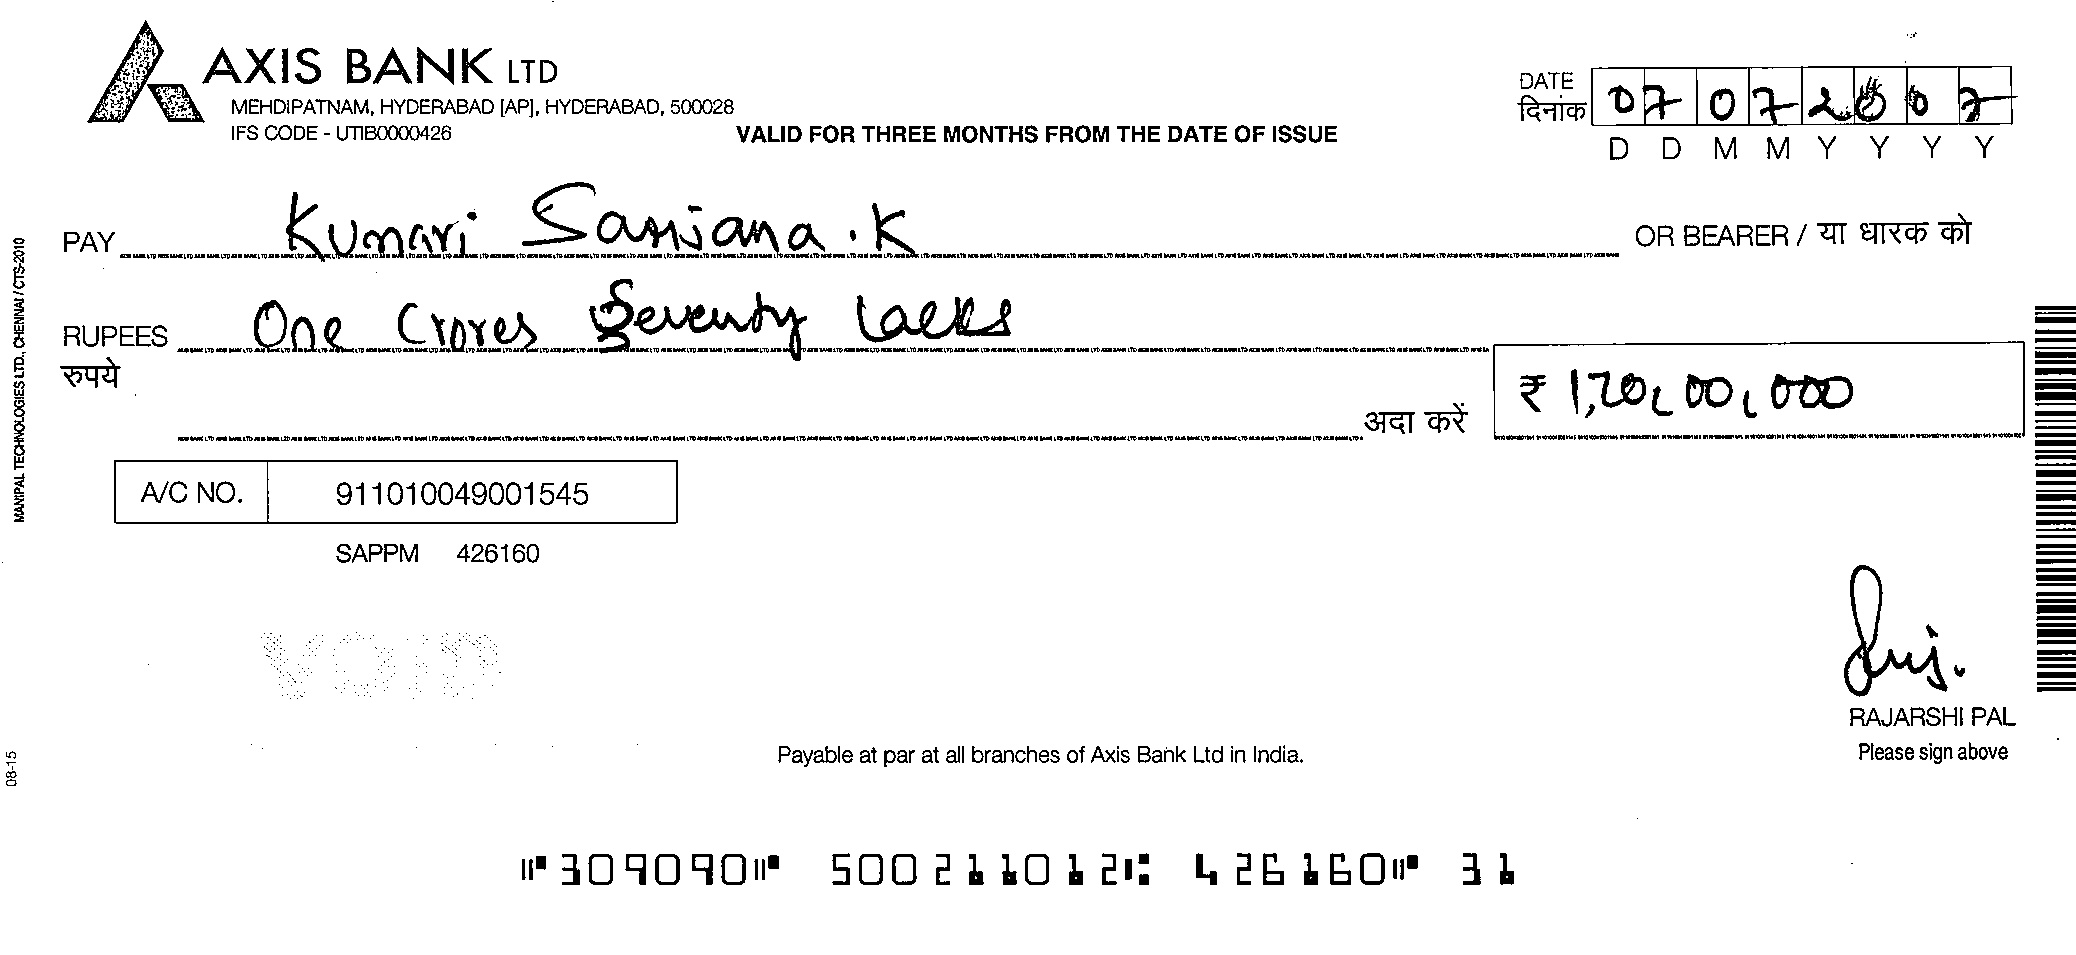 AXIS BANK LTD
MEHDIPATNAM, HYDERABAD [AP], HYDERABAD, 500028
IFS CODE - UTIB0000426
VALID FOR THREE MONTHS FROM THE DATE OF ISSUE
DATE
दिनांक 07072007
D D M M Y Y Y Y
PAY Kumari Sanjana . K OR BEARER / या धारक को
RUPEES One Crores Seventy Lacks
रुपये
अदा करें ₹ 1,70,00,000
A/C NO. 911010049001545
SAPPM 426160
VOID
RAJARSHI PAL
Please sign above
Payable at par at all branches of Axis Bank Ltd in India.
MANIPAL TECHNOLOGIES LTD., CHENNAI / CTS-2010
08-15
⑈309090⑈ 500211012⑆ 426160⑈ 31